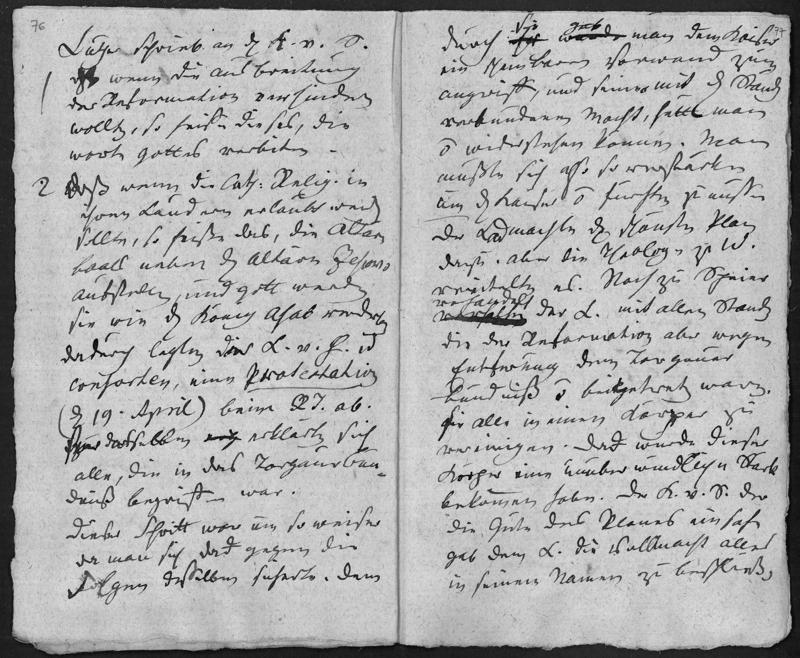 76
Luther schrieb an d K. v. S.
1 daß wenn die ausbreitung
der Reformation verhindern
wollte, so heiße dieses, die
wort gottes verbiten –
2 Daß wenn die Cath: Relig. in
ihren Ländern erlaubt werd
sollte, so heiße das, die Altäre
baals neben d Altären Jehova
aufstellen, und gott werde
sie wie d König Ahab
dadurch legten die L. v. H. u
consorten, eine Protestation
(d 19. April) beim RT. ab.
derselben erklärte sich
alle, die in das Torgaurbün-
dniß begriffen war.
Dieser Schritt war um so weiser
da man sich dad gegen die
Folgen desselben sicherte. dem
77
durch gab man dem Kaiser
ein scheinbaren Vorwand zum
angriff, und seiner mit d Ständ
verbundenen Macht, hätte man
ō widerstehen können. Man
mußte sich also so verstärken
um d Kaiser ō fürchten zu müssen
Der Ldmachte d schönsten Plan
dazu. aber die Theologn zu W.
vereitelten es. Noch zu Speier
verhandelte der L. mit allen Ständ
die der Reformation aber wegen
Entfernung dem Torgauer
bündniß ō beigetreten waren.
sie alle in einen Körper zu
vereinigen. Dad würde dieser
Körper eine unüberwindlichn Stärk
bekommen haben. Der K. v. S. der
die Güte des Planes einsah
gab dem L. die vollmacht alles
in seinem Namen zu beschließ,